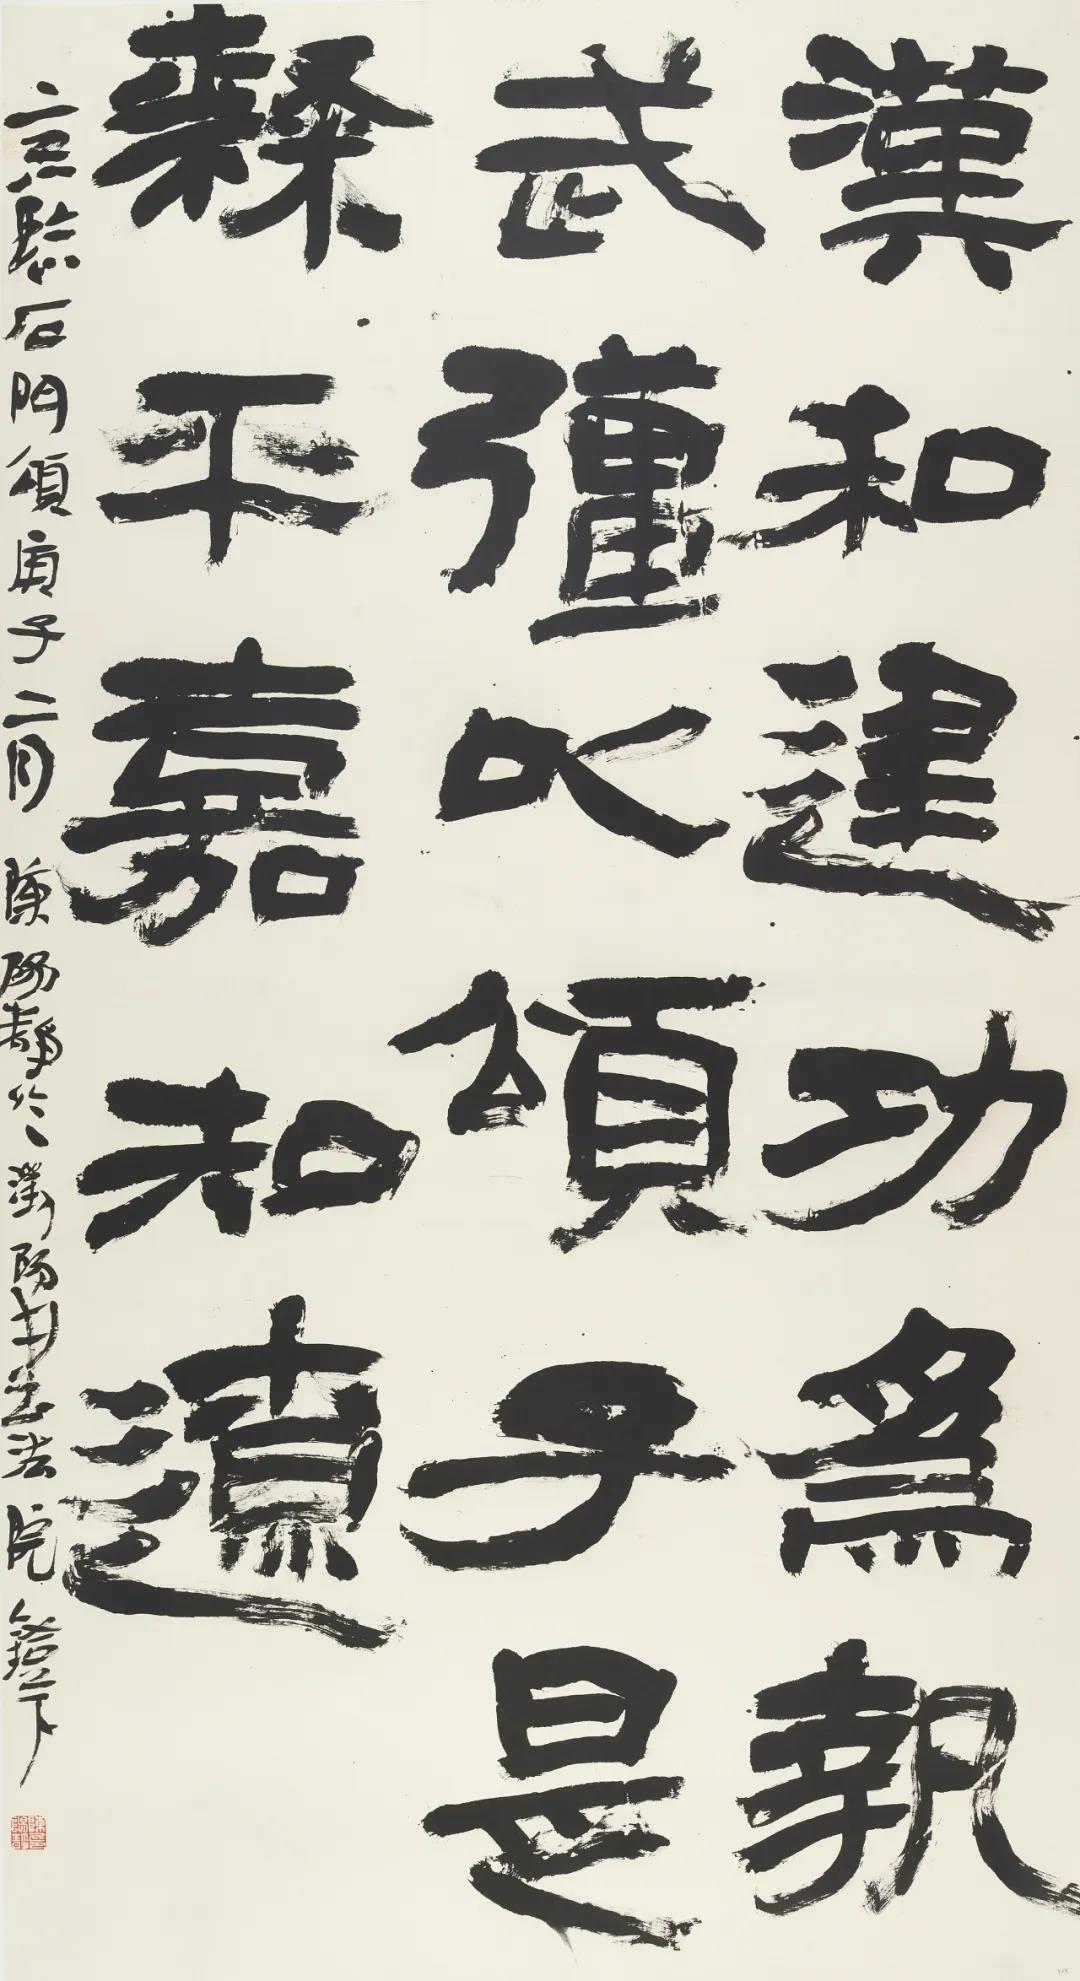 漢和建功爲執
武彊以頌子是
隸平嘉知遺
意臨石門頌庚子二月陳陽靜於瀏陽書法院鐙下